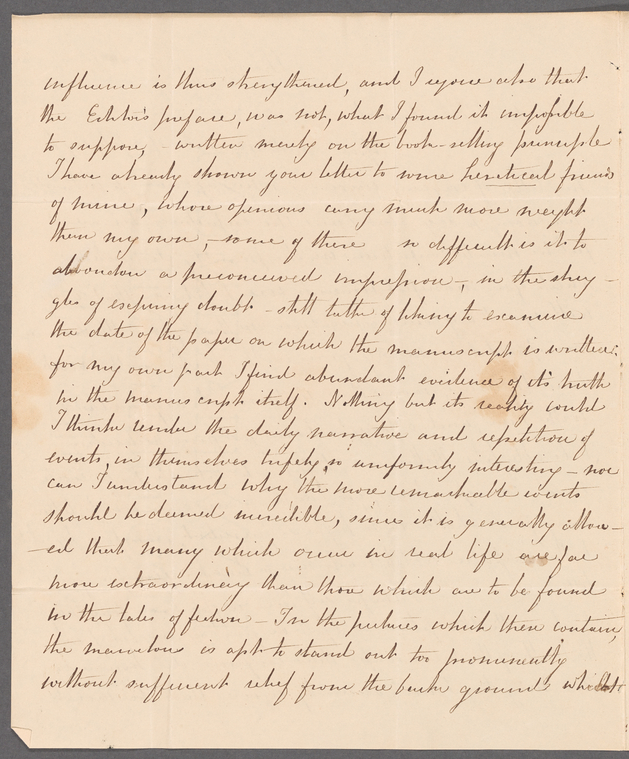 influence is thus strengthened, and I rejoice also that
the Editor's preface, was not, what I found it impossible
to suppose, - written merely on the book-selling principle
I have already shown your letter to some heretical friends
of mine, whose opinions carry much more weight
than my own, - some of these so difficult is it to
abandon a preconceived impression -, in the strug-
gles of expiring doubt - still talk of liking to examine
the date of the paper on which the manuscript is written:
for my own part I find abundant evidence of it's truth
in the manuscript itself. Nothing but its reality could
I think render the daily narrative and repetition of
events, in themselves trifling, so uniformly interesting - nor
can I understand why the more remarkable events
should be deemed incredible, since it is generally allow-
-ed that many which occur in real life are far
more extraordinary than those which are to be found
in the tales of fiction - In the pictures which these contain,
the marvelous is apt to stand out too prominently
without sufficient relief from the back ground whilst